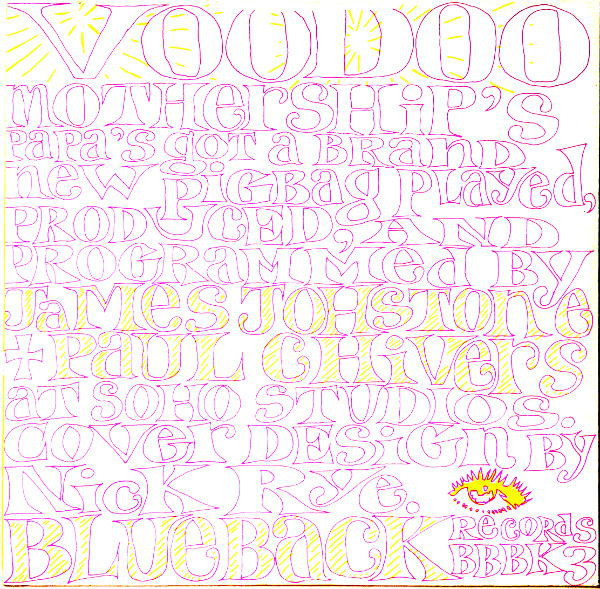 VOODOO
MOTHERSHIP'S
PAPA'S GOT A BRAND
NEW PIGBAG PLAYED,
PRODUCED, AND
PROGRAMMED BY
JAMES JOHSTONE
+ PAUL CHIVERS
AT SOHO STUDIOS.
COVER DESIGN BY
NICK RYE.
BLUEBACK RECORDS
BBBK3